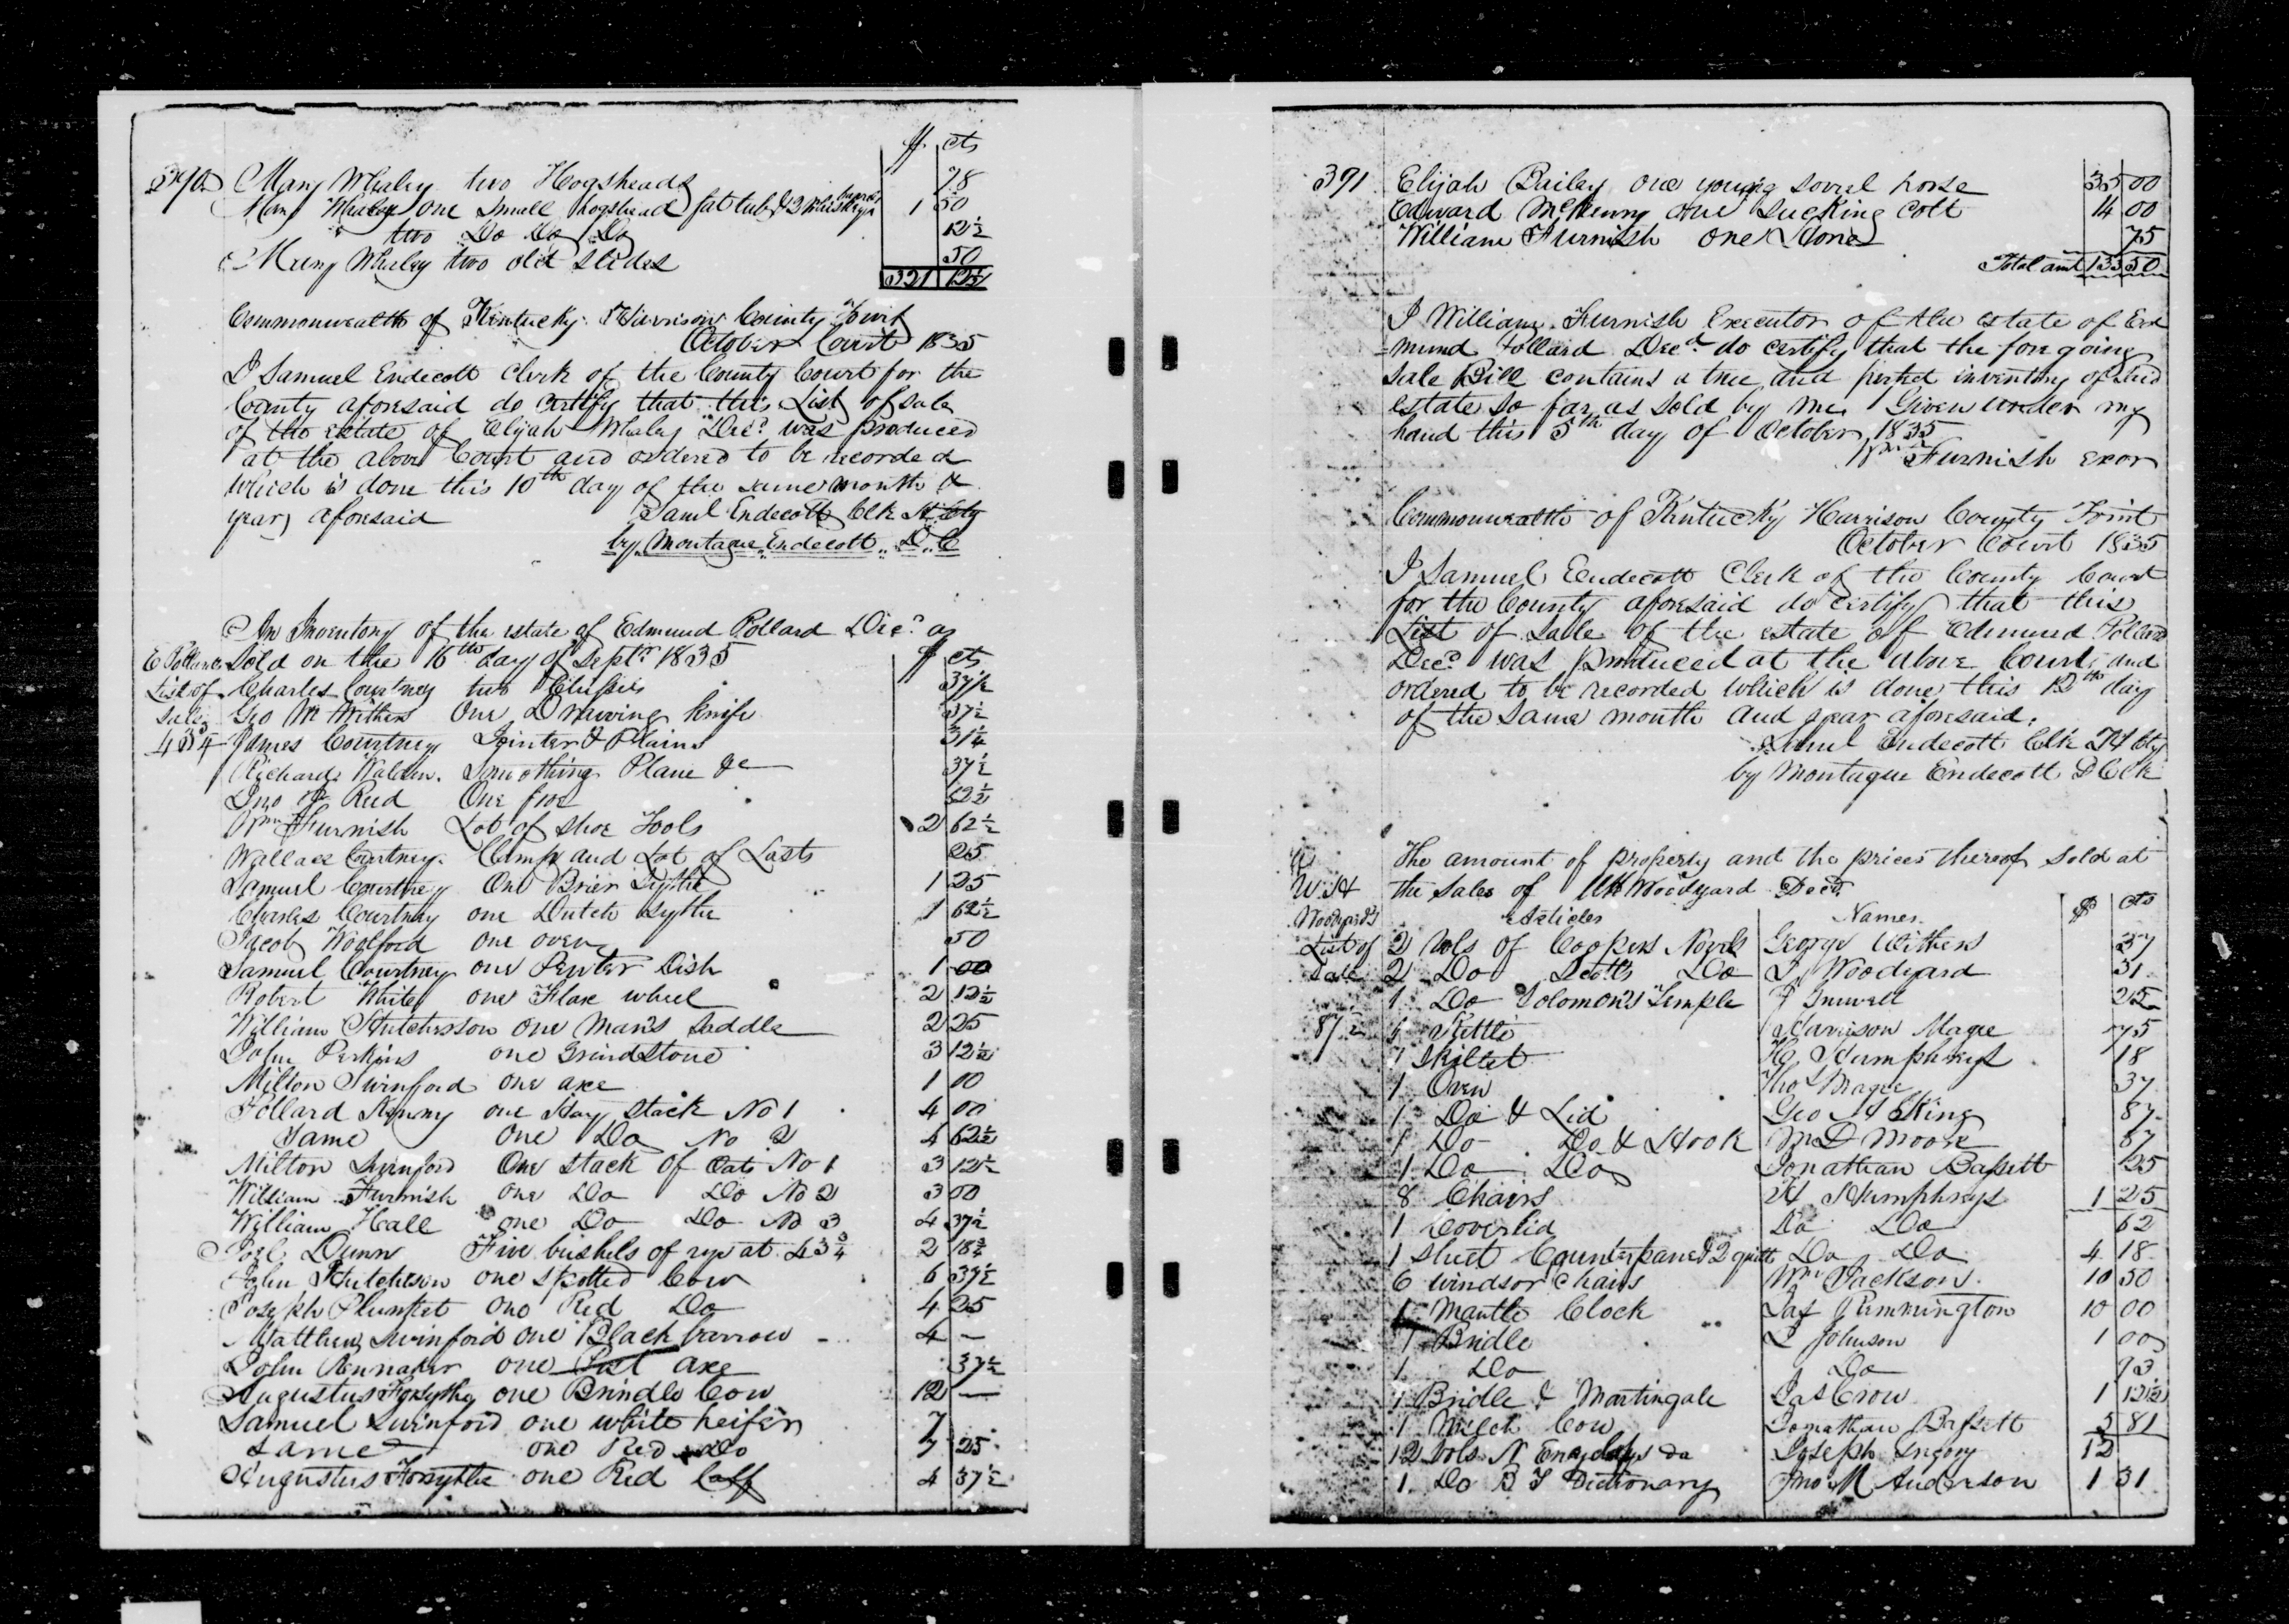 $ cts
390 Mary Whaley two Hogsheads 78
Mary Whaley one small hogshead fat tub & 2 Whiskey barrels 1 50
two Do Do Do 12½
Mary Whaley two old slides 50
321 12½
Commonwealth of Kentucky Harrison County Towit
October Court 1835
I Samuel Endecott Clerk of the County Court for the
County aforesaid do certify that this List of sale
of the estate of Elijah Whaley Decd. was produced
at the above Court and ordered to be recorded
which is done this 10th day of the same month &
year aforesaid Saml Endecott Clk H Cty
by Montague Endecott D.C
An Inventory of the estate of Edmund Pollard Decd. as
E Pollards sold on the 16th day of Septr. 1835 $ cts
List of Charles Courtney two Chisels 37½
Sale Geo W Withers One Drawing knife 37½
434 James Courtney Jointer & Plains 31¼
Richard Walden. Smoothing Plane &c 37½
Jno Reed One froe 62½
Wm Furnish Lot of shoe Tools 2 62½
Wallace Courtney Clamp and Lot of Lasts 25
Samuel Courtney One Brier Sythe 1 25
Charles Courtney one Dutch sythe 1 62½
Jacob Woolford one oven 50
Samuel Courtney one Pewter Dish 1 00
Robert White one Flax wheel 2 12½
William Hutchesson one Man's Saddle 2 25
John Perkins one Grindstone 3 12½
Milton Swinford one axe 1 00
Pollard Kenny one Hay stack No 1 4 00
Same One Do No 2 4 62½
Milton Swinford One stack of Oats No 1 3 12½
William Furnish one Do Do No 2 3 00
William Hall one Do Do No 3 4 37½
Joel Dunn Five bushels of rye at 43¾ 2 18¾
John Hutcheson one spotted Cow 6 37½
Joseph Plunket one Red Do 4 25
Matthew Swinford one Black barrow 4 —
John Rennaker one Post axe 37½
Augustus Forsythe one Brindle Cow 12 —
Samuel Swinford one white heifer 7
Same one Red Do 7 25
Augustus Forsythe one Red Calf 4 37½
391 Elijah Bailey one young sorrel horse 35 00
Edward McKenny one sucking colt 14 00
William Furnish one Stone 75
Total amt 133 50
I William Furnish Executor of the estate of Ed
=mund Pollard Decd. do certify that the foregoing
sale Bill contains a true and perfect inventory of said
estate so far as sold by me. Given under my
hand this 5th day of October 1835
Wm Furnish exor
Commonwealth of Kentucky Harrison County Towit
October Court 1835
I Samuel Endecott Clerk of the County Court
for the County aforesaid do certify that this
List of Sale of the estate of Edmund Pollard
Decd. was produced at the above Court and
ordered to be recorded which is done this 12th day
of the same month and year aforesaid.
Saml Endecott Clk H Cty
by Montague Endecott D Clk
The amount of property and the prices thereof sold at
W H the sales of WH Woodyard Decd.
Woodyard's Articles Names $ cts
List of 2 Vols of Coopers Novels George Withers 37
Sale 2 Do Scotts Do J Woodyard 31
1 Do Solomon's Temple J 25
87½ 1 Kettle Harrison Magee 75
1 Skillet H Humphreys 18
1 Oven Thos Magee 37
1 Do & Lid Geo H King 87
1 Do Do & Hook M D Moore 87
1 Do Do Jonathan Bassett 125
8 Chairs H Humphreys 1 25
1 Coverlid Do Do 62
1 sheet Counterpane & 2 quilts Do Do 4 18
6 windsor chairs Wm Jackson 10 50
1 Mantle Clock Jas Remmington 10 00
1 Bridle L Johnson 1 00
1 Do Do 93
1 Bridle & Martingale Jas Crow 1 12½
1 Milch Cow Jonathan Bassett 5 81
12 Vols N Joseph 12
1 Do Dictionary Jno M Anderson 1 31